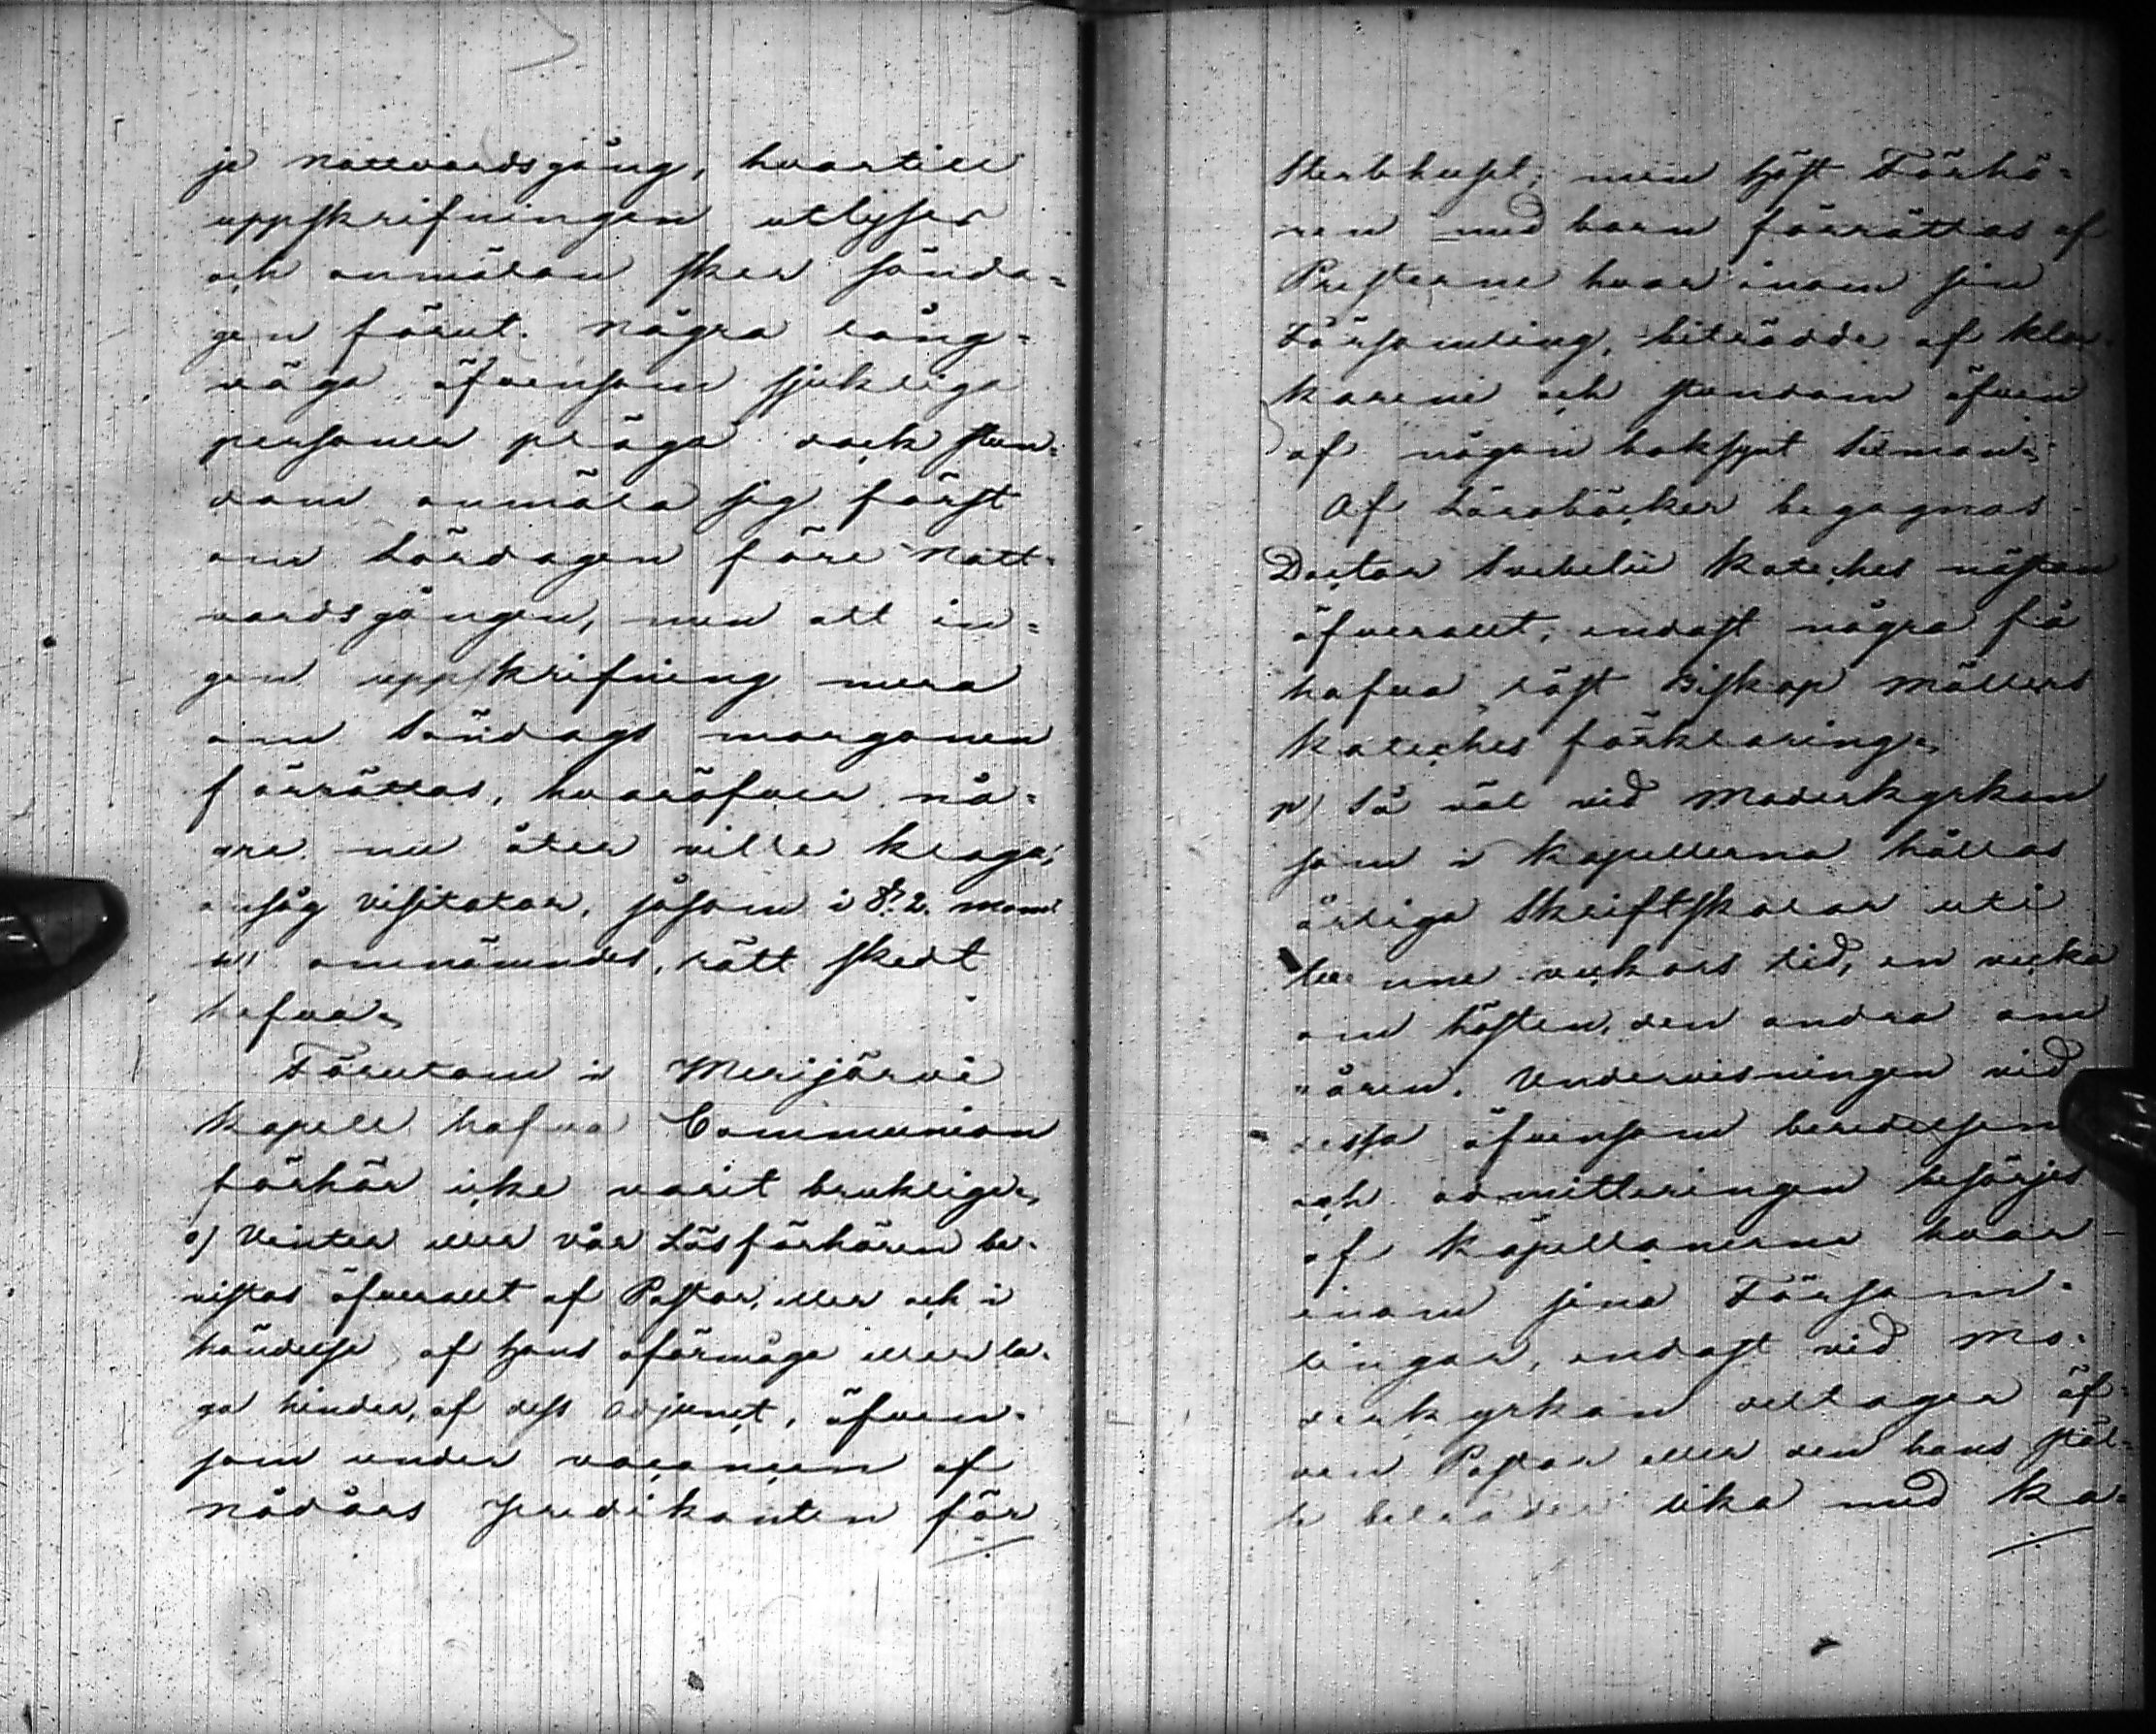 je Nattvardsgång, hvartill
uppskrifningen utlyses
och anmälan sker sönda=
gen förut. Några lång=
väga äfvensom sjukliga
personer pläga dock stun=
dom anmäla sig först
om Lördagen före Natt=
vardsgången, men att in=
gen uppskrifning mera
om Söndags morgonen
förrättas, hvaröfver nå=
gre nu åter ville klaga,
ansåg Visitator, såsom i §. 2. mom:
omnämndes, rätt skedt
hafva.
Förutom i Merijärvi
Kapell hafva Communion
förhör icke varit brukliga.
o) Vinter eller vår Läsförhören be=
vistas öfverallt af Pastor, eller och i
händelse af hans oförmåga eller la=
ga hinder, af dess Adjunct, äfven=
som under vacancen af
Nådårs Predikanten för
Sterbhuset; men höst Förhö=
ren med barn förrättas af
Presterne hvar inom sin
Församling, biträdde af Kloc=
karene och stundom äfven
af någon boksynt Sexman.
Af Läroböcker begagnas
Doctor Svebelii Kateches nästan
öfverallt, endast några få
hafva läst Biskop Möllers
Kateches förklaring.
p) Så väl vid Moderkyrkan
som i Kapellerna hållas
årliga Skriftskolar uti
tvenne veckors tid, en vecka
om hösten, den andra om
våren. Undervisningen vid
dessa äfvensom beredelsen
och admitteringen besörjes
af Kapellanerne hvar
inom sina Försam=
lingar, endast vid Mo=
derkyrkan deltager äf=
ven Pastor eller den hans ställe
beträder lika med Ka=